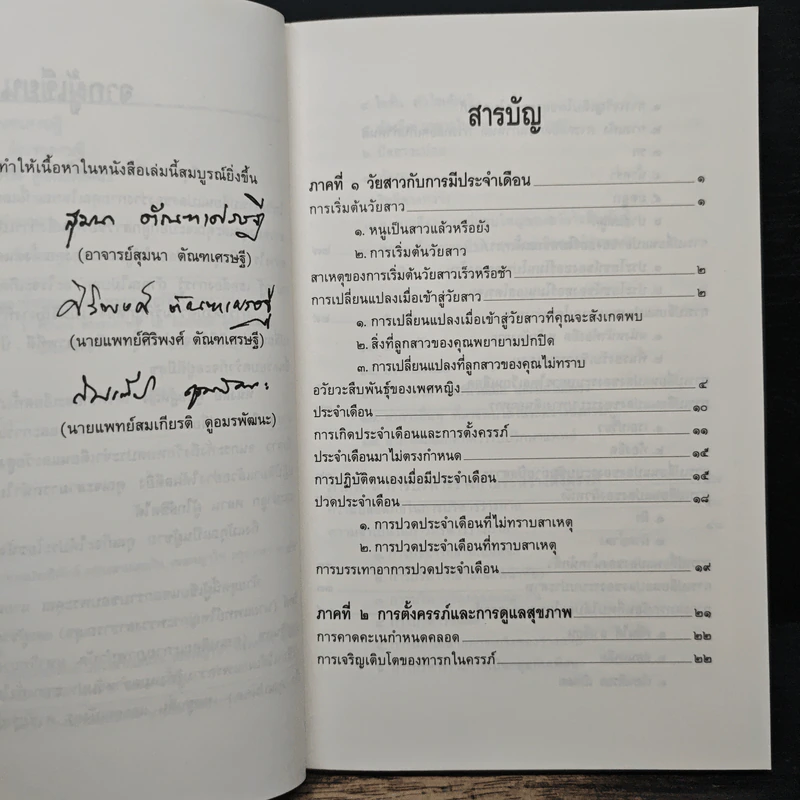 ทำให้เนื้อหาในหนังสือเล่มนี้สมบูรณ์ยิ่งขึ้น
สุมนา ตัณฑเศรษฐี
(อาจารย์สุมนา ตัณฑเศรษฐี)
ศิริพงศ์ ตัณฑเศรษฐี
(นายแพทย์ศิริพงศ์ ตัณฑเศรษฐี)
(นายแพทย์สมเกียรติ ดูอมรพัฒนะ)
สารบัญ
ภาคที่ ๑ วัยสาวกับการมีประจำเดือน ๑
การเริ่มต้นวัยสาว ๑
๑. หนูเป็นสาวแล้วหรือยัง
๒. การเริ่มต้นวัยสาว
สาเหตุของการเริ่มต้นวัยสาวเร็วหรือช้า ๒
การเปลี่ยนแปลงเมื่อเข้าสู่วัยสาว ๒
๑. การเปลี่ยนแปลงเมื่อเข้าสู่วัยสาวที่คุณจะสังเกตพบ
๒. สิ่งที่ลูกสาวของคุณพยายามปกปิด
๓. การเปลี่ยนแปลงที่ลูกสาวของคุณไม่ทราบ
อวัยวะสืบพันธุ์ของเพศหญิง ๔
ประจำเดือน ๑๐
การเกิดประจำเดือนและการตั้งครรภ์ ๑๑
ประจำเดือนมาไม่ตรงกำหนด ๑๕
การปฏิบัติตนเองเมื่อมีประจำเดือน ๑๕
ปวดประจำเดือน ๑๘
๑. การปวดประจำเดือนที่ไม่ทราบสาเหตุ
๒. การปวดประจำเดือนที่ทราบสาเหตุ
การบรรเทาอาการปวดประจำเดือน ๑๙
ภาคที่ ๒ การตั้งครรภ์และการดูแลสุขภาพ ๒๑
การคาดคะเนกำหนดคลอด ๒๒
การเจริญเติบโตของทารกในครรภ์ ๒๒